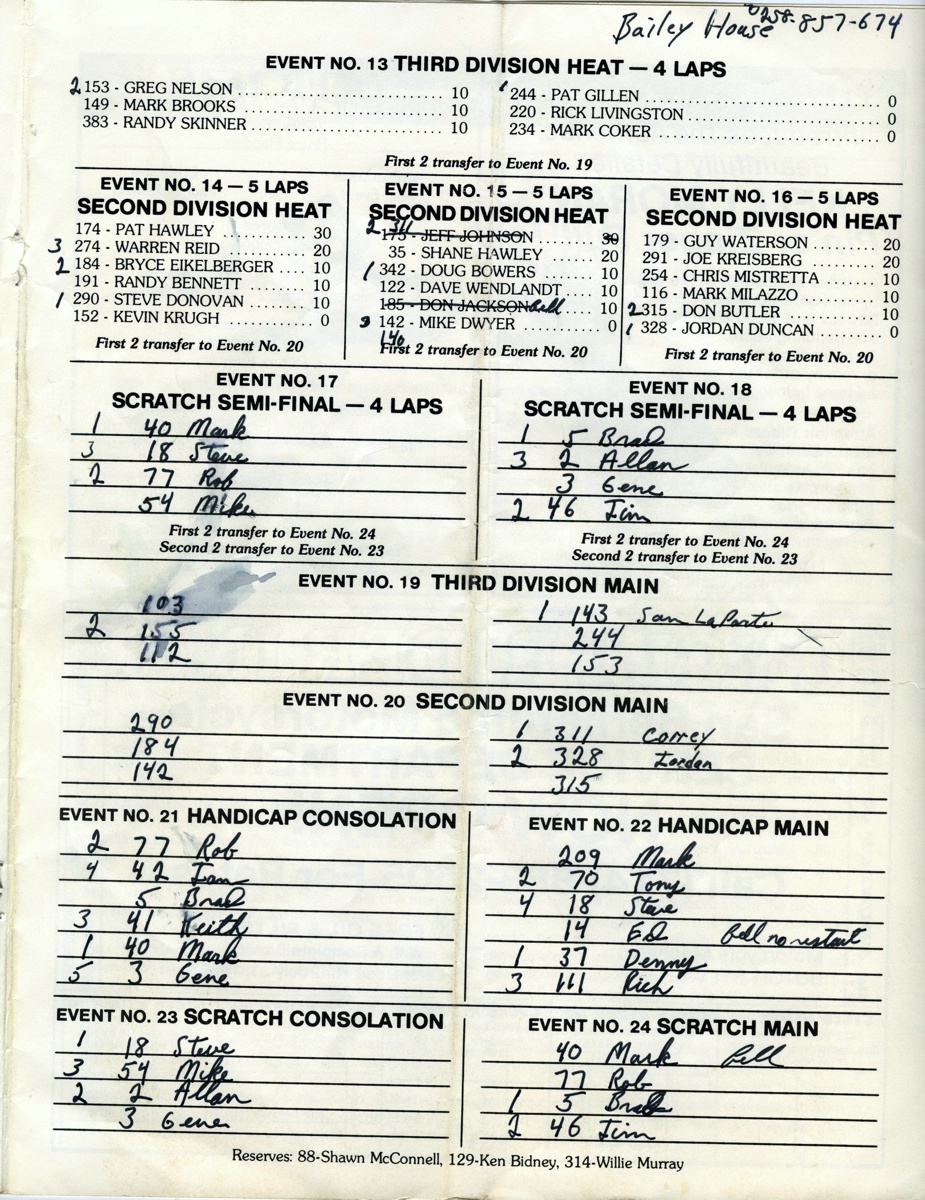 Bailey House
EVENT NO. 13 THIRD DIVISION HEAT — 4 LAPS
2 153 - GREG NELSON 10
149 - MARK BROOKS 10
383 - RANDY SKINNER 10
1 244 - PAT GILLEN 0
220 - RICK LIVINGSTON 0
234 - MARK COKER 0
First 2 transfer to Event No. 19
EVENT NO. 14 — 5 LAPS
SECOND DIVISION HEAT
174 - PAT HAWLEY 30
3 274 - WARREN REID 20
2 184 - BRYCE EIKELBERGER 10
191 - RANDY BENNETT 10
1 290 - STEVE DONOVAN 10
152 - KEVIN KRUGH 0
First 2 transfer to Event No. 20
EVENT NO. 15 — 5 LAPS
SECOND DIVISION HEAT
2 311
175 - JEFF JOHNSON 30
35 - SHANE HAWLEY 20
1 342 - DOUG BOWERS 10
122 - DAVE WENDLANDT 10
185 - DON JACKSON fell 10
3 142 - MIKE DWYER 0
140
First 2 transfer to Event No. 20
EVENT NO. 16 — 5 LAPS
SECOND DIVISION HEAT
179 - GUY WATERSON 20
291 - JOE KREISBERG 20
254 - CHRIS MISTRETTA 10
116 - MARK MILAZZO 10
2 315 - DON BUTLER 10
1 328 - JORDAN DUNCAN 0
First 2 transfer to Event No. 20
EVENT NO. 17
SCRATCH SEMI-FINAL — 4 LAPS
1 40 Mark
3 18 Steve
2 77 Rob
54 Mike
First 2 transfer to Event No. 24
Second 2 transfer to Event No. 23
EVENT NO. 18
SCRATCH SEMI-FINAL — 4 LAPS
1 5 Brad
3 2 Allan
3 Gene
2 46 Jim
First 2 transfer to Event No. 24
Second 2 transfer to Event No. 23
EVENT NO. 19 THIRD DIVISION MAIN
103
2 155
112
1 143 Sam LaPorte
244
153
EVENT NO. 20 SECOND DIVISION MAIN
290
184
142
1 311 Correy
2 328 Jordan
315
EVENT NO. 21 HANDICAP CONSOLATION
2 77 Rob
4 42 Ian
5 Brad
3 41 Keith
1 40 Mark
5 3 Gene
EVENT NO. 22 HANDICAP MAIN
209 Mark
2 70 Tony
4 18 Steve
14 Ed fell no restart
1 37 Denny
3 111 Rich
EVENT NO. 23 SCRATCH CONSOLATION
1 18 Steve
3 54 Mike
2 2 Allan
3 Gene
EVENT NO. 24 SCRATCH MAIN
40 Mark fell
77 Rob
1 5 Brad
2 46 Jim
Reserves: 88-Shawn McConnell, 129-Ken Bidney, 314-Willie Murray